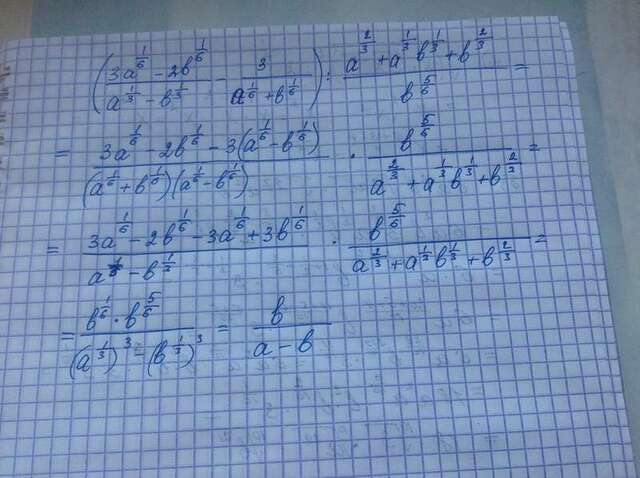 (3a^(1/6) - 2b^(1/6) / a^(1/3) - b^(1/3) - 3 / a^(1/6) + b^(1/6)) : a^(2/3) + a^(1/3) b^(1/3) + b^(2/3) / b^(5/6) =
= 3a^(1/6) - 2b^(1/6) - 3(a^(1/6) - b^(1/6)) / (a^(1/6) + b^(1/6))(a^(1/6) - b^(1/6)) · b^(5/6) / a^(2/3) + a^(1/3) b^(1/3) + b^(2/3) =
= 3a^(1/6) - 2b^(1/6) - 3a^(1/6) + 3b^(1/6) / a^(1/3) - b^(1/3) · b^(5/6) / a^(2/3) + a^(1/3) b^(1/3) + b^(2/3) =
= b^(1/6) · b^(5/6) / (a^(1/3))^3 - (b^(1/3))^3 = b / a - b